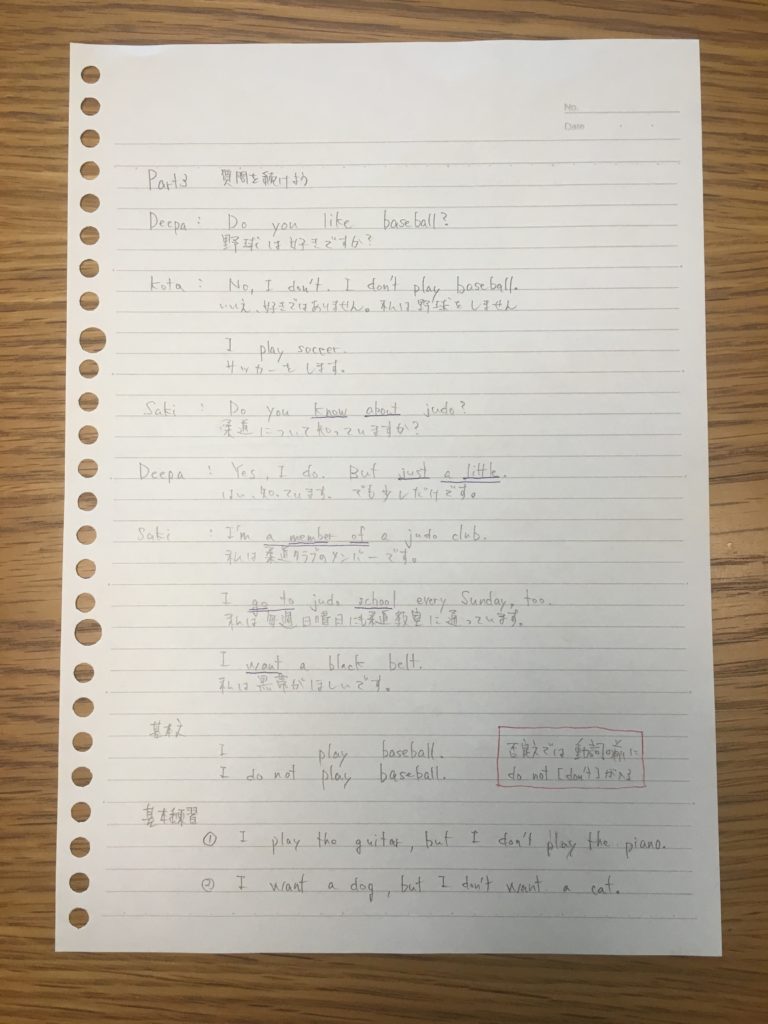 No.
Date
Part3 質問を続けよう
Deepa : Do you like baseball?
野球は好きですか?
Kota : No, I don't. I don't play baseball.
いいえ、好きではありません。私は野球をしません
I play soccer.
サッカーをします。
Saki : Do you know about judo?
柔道について知っていますか?
Deepa : Yes, I do. But just a little.
はい、知っています。でも少しだけです。
Saki : I'm a member of a judo club.
私は柔道クラブのメンバーです。
I go to judo school every Sunday, too.
私は毎週日曜日にも柔道教室に通っています。
I want a black belt.
私は黒帯がほしいです。
基本文
I play baseball.
I do not play baseball.
否定文では動詞の前に
do not [don't]が入る
基本練習
① I play the guitar, but I don't play the piano.
② I want a dog, but I don't want a cat.